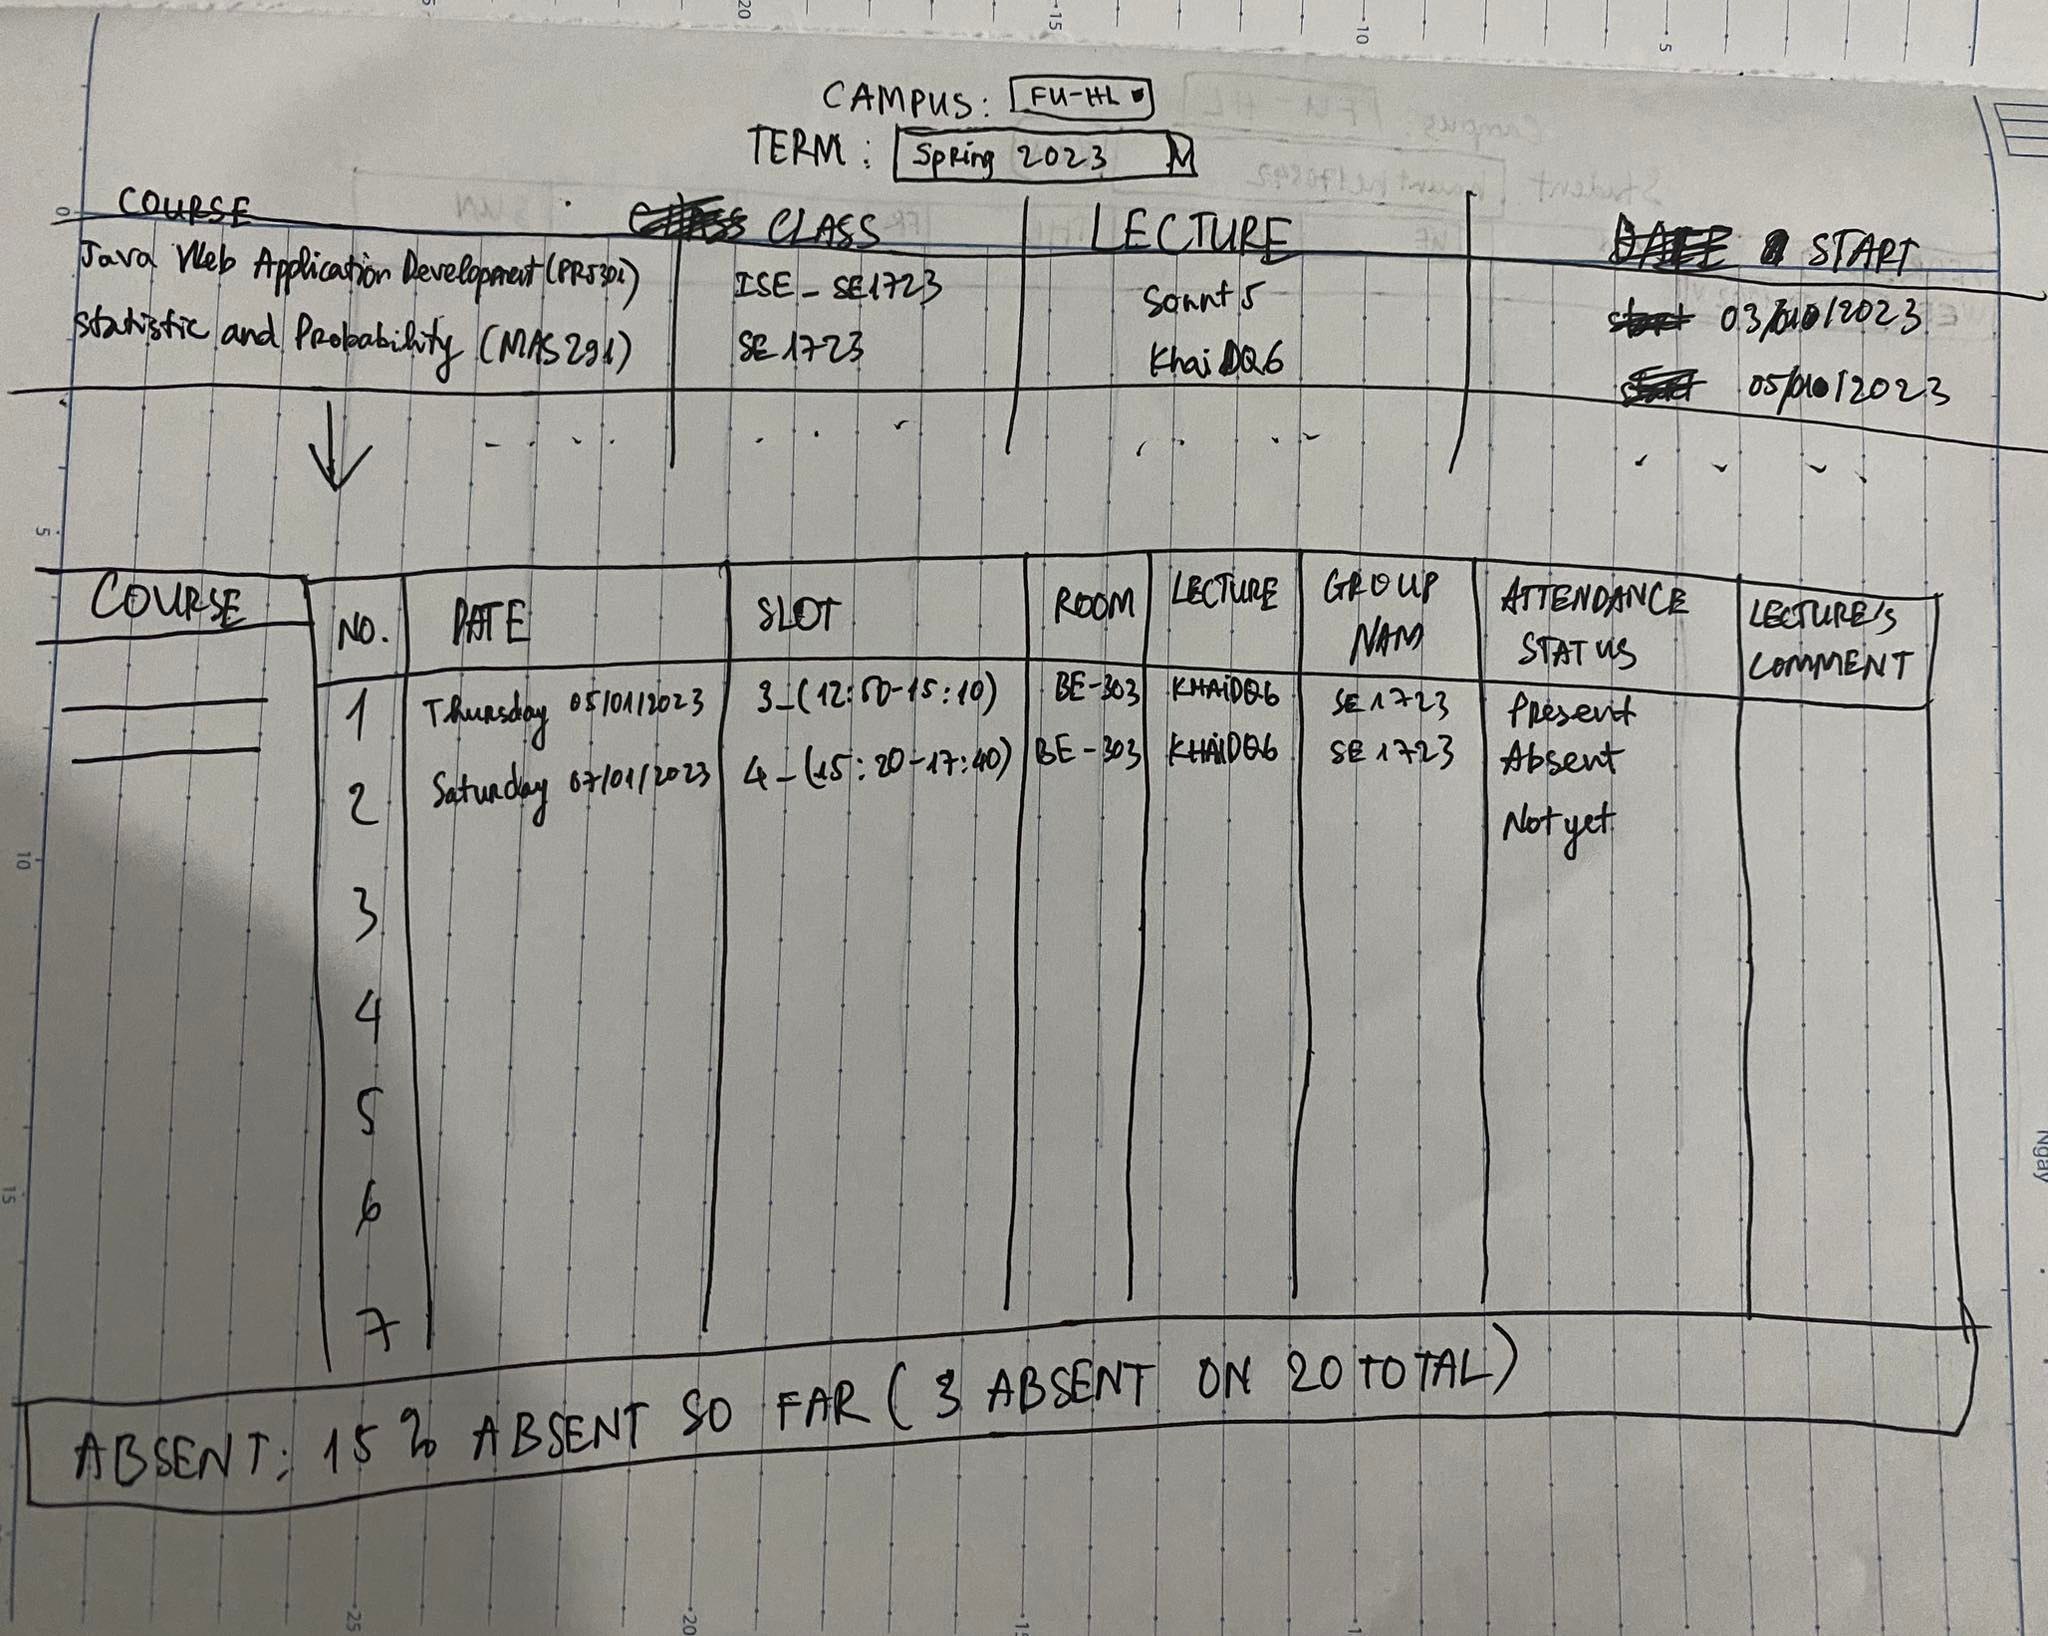 CAMPUS: FU-HL
TERM: Spring 2023
COURSE CLASS LECTURE START
Java Web Application Development (PRJ301) ISE-SE1723 Sonnt5 03/01/2023
Statistic and Probability (MAS291) SE1723 KhaiDQ6 05/01/2023
COURSE NO. DATE SLOT ROOM LECTURE GROUP NAM ATTENDANCE STATUS LECTURE'S COMMENT
1 Thursday 05/01/2023 3-(12:50-15:10) BE-303 KHAIDQ6 SE1723 Present
2 Saturday 07/01/2023 4-(15:20-17:40) BE-303 KHAIDQ6 SE1723 Absent
Not yet
3
4
5
6
7
ABSENT: 15% ABSENT SO FAR (3 ABSENT ON 20 TOTAL)
20
15
10
5
0
5
10
15
25
20
Ngày